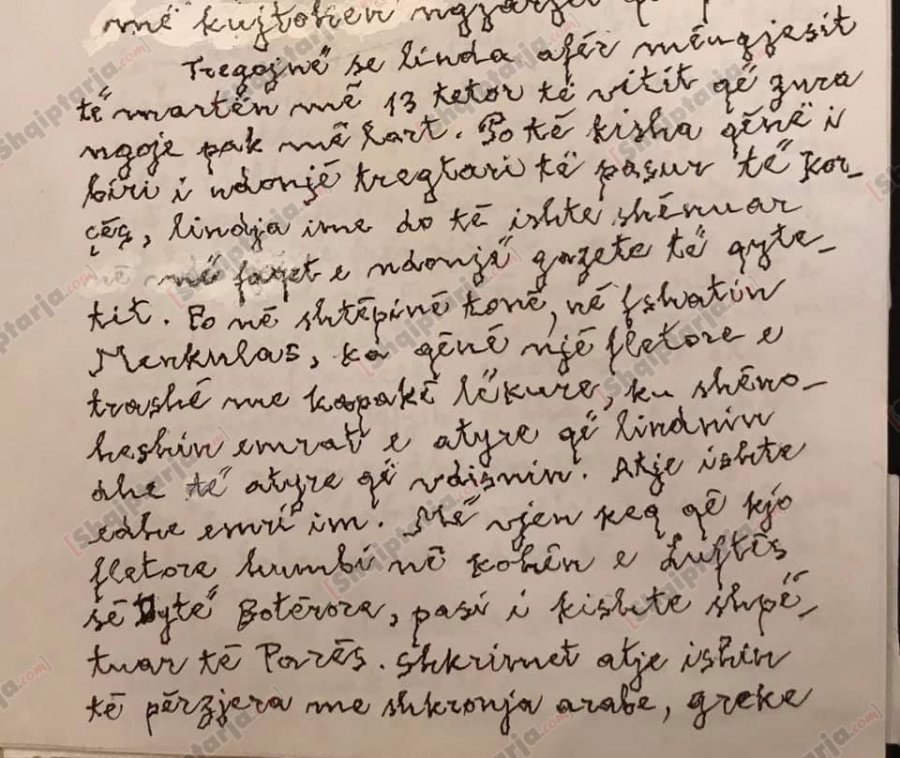 më kujtohen ngjarjet
Tregojnë se linda afër mëngjesit
të martën më 13 tetor të vitit që zura
ngoje pak më lart. Po të kisha qënë i
biri i ndonjë tregtari të pasur të Kor-
çës, lindja ime do të ishte shënuar
në më faqet e ndonjë gazete të qyte-
tit. Po në shtëpinë tonë, në fshatin
Menkulas, ka qënë një fletore e
trashë me kapakë lëkure, ku shëno-
heshin emrat e atyre që lindnin
dhe të atyre që vdisnin. Atje ishte
edhe emri im. Më vjen keq që kjo
fletore humbi në kohën e Luftës
së Dytë Botërore, pasi i kishte shpë-
tuar të Parës. Shkrimet atje ishin
të përzjera me shkronja arabe, greke